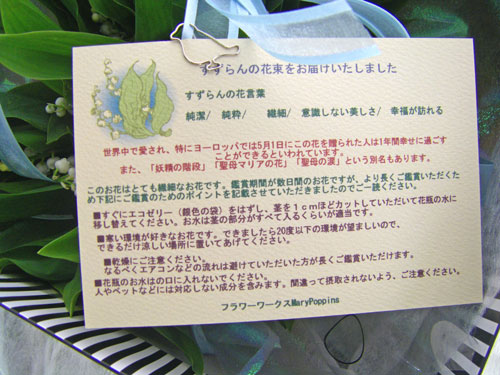 すずらんの花束をお届けいたしました
すずらんの花言葉
純潔/ 純粋/ 繊細/ 意識しない美しさ/ 幸福が訪れる
世界中で愛され、特にヨーロッパでは5月1日にこの花を贈られた人は1年間幸せに過ごす
ことができるといわれています。
また、「妖精の階段」「聖母マリアの花」「聖母の涙」という別名もあります。
このお花はとても繊細なお花です。鑑賞期間が数日間のお花ですが、より長くご鑑賞いただくた
め下記にご鑑賞のためのポイントを記載させていただきましたのでご一読ください。
■すぐにエコゼリー（銀色の袋）をはずし、茎を1cmほどカットしていただいて花瓶の水に
移し替えてください。お水は茎の部分がすべて入るくらいが適当です。
■寒い環境が好きなお花です。できましたら20度以下の環境が望ましいので、
できるだけ涼しい場所に置いてあげてください。
■乾燥にご注意ください。
なるべくエアコンなどの流れは避けていただいた方が長くご鑑賞いただけます。
■花瓶のお水はの口に入れないでください。
人やペットなどには対応しない成分を含みます。間違って摂取されないよう、ご注意ください。
フラワーワークスMaryPoppins